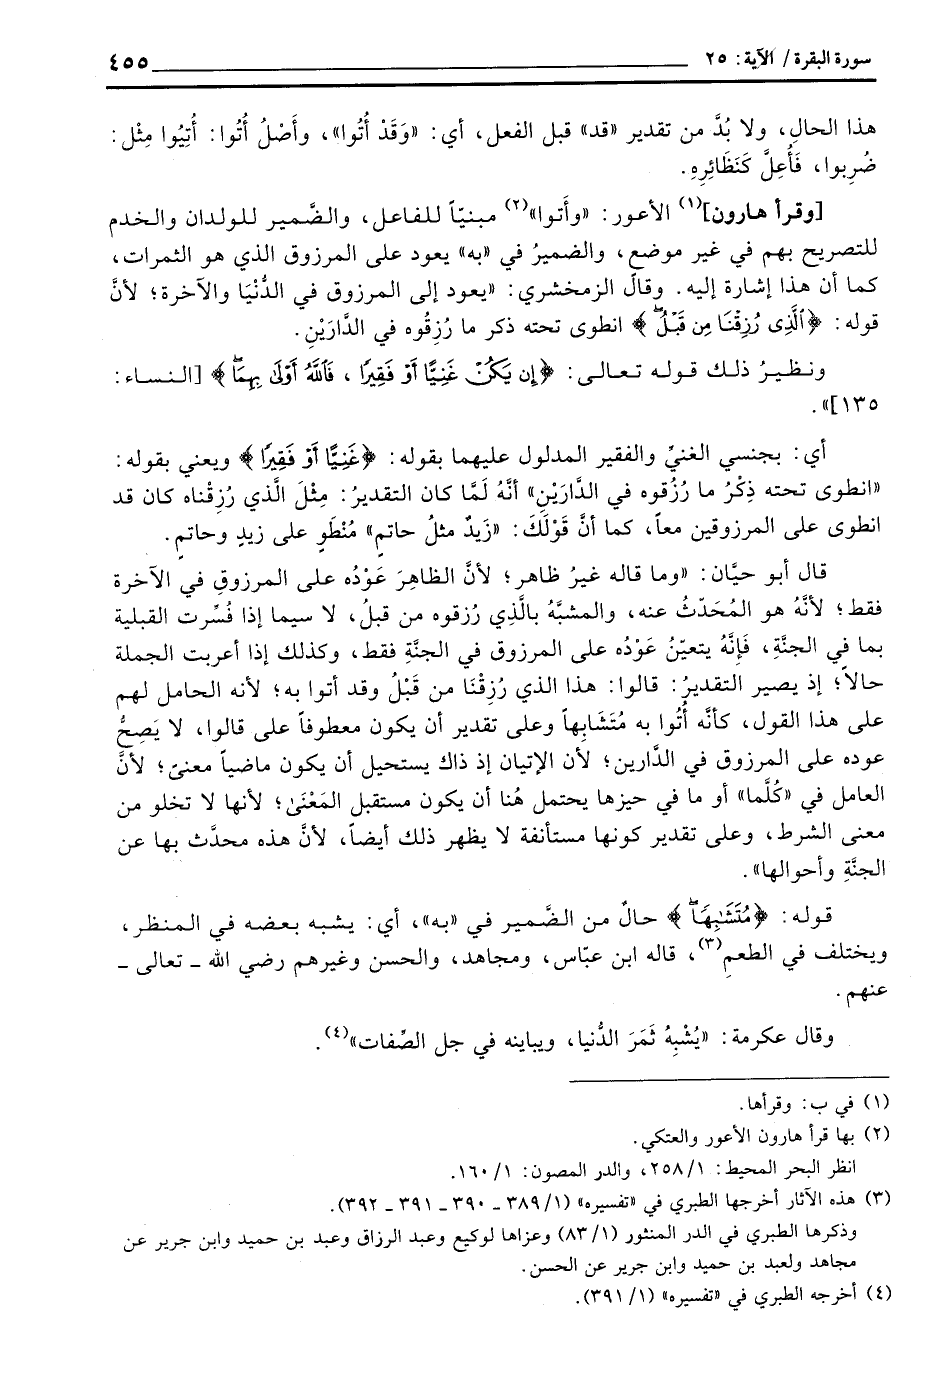 سورة البقرة / الآية: ٢٥ ٤٥٥
هذا الحال، ولا بُدَّ من تقدير «قد» قبل الفعل، أي: «وَقَدْ أُتُوا»، وأَصْلُ أُتُوا: أُتِيُوا مِثْل:
ضُرِبوا، فَأُعِلَّ كَنَظَائِرِهِ.
[وقرأ هارون]<sup>(١)</sup> الأعور: «وأَتوا»<sup>(٢)</sup> مبنيّاً للفاعل، والضَّمير للولدان والخدم
للتصريح بهم في غير موضع، والضميرُ في «به» يعود على المرزوق الذي هو الثمرات،
كما أن هذا إشارة إليه. وقال الزمخشري: «يعود إلى المرزوق في الدُّنْيَا والآخرة؛ لأنَّ
قوله: ﴿ٱلَّذِى رُزِقْنَا مِن قَبْلُۖ﴾ انطوى تحته ذكر ما رُزِقُوه في الدَّارَيْنِ.
ونـظـيـرُ ذلـك قـولـه تـعـالـى: ﴿إِن يَكُنْ غَنِيًّا أَوْ فَقِيرًا ، فَٱللَّهُ أَوْلَىٰ بِهِمَاۖ﴾ [الـنـسـاء:
١٣٥]».
أي: بجنسي الغنيِّ والفقير المدلول عليهما بقوله: ﴿غَنِيًّا أَوْ فَقِيرًا﴾ ويعني بقوله:
«انطوى تحته ذِكْرُ ما رُزُقوه في الدَّارَيْنِ» أنَّهُ لَمَّا كان التقديرُ: مِثْلَ الَّذي رُزِقْناه كان قد
انطوى على المرزوقين معاً، كما أنَّ قَوْلَكَ: «زَيدٌ مثلُ حاتمٍ» مُنْطَوٍ على زيدٍ وحاتمٍ.
قال أبو حيَّان: «وما قاله غيرُ ظاهر؛ لأنَّ الظاهِرَ عَوْدُه على المرزوقِ في الآخرة
فقط؛ لأنَّهُ هو المُحَدّثُ عنه، والمشبَّهُ بالَّذِي رُزقوه من قبلُ، لا سيما إذا فُسِّرت القبلية
بما في الجنَّةِ، فَإِنَّهُ يتعيّنُ عَوْدُه على المرزوق في الجنَّةِ فقط، وكذلك إذا أعربت الجملة
حالاً؛ إذ يصير التقديرُ: قالوا: هذا الذي رُزِقْنَا من قَبْلُ وقد أتوا به؛ لأنه الحامل لهم
على هذا القول، كأنَّه أُتُوا به مُتَشَابِهاً وعلى تقدير أن يكون معطوفاً على قالوا، لا يَصِحُّ
عوده على المرزوق في الدَّارين؛ لأن الإتيان إذ ذاك يستحيل أن يكون ماضياً معنىً؛ لأنَّ
العامل في «كُلَّما» أو ما في حيزها يحتمل هُنا أن يكون مستقبل المَعْنَىٰ؛ لأنها لا تخلو من
معنى الشرط، وعلى تقدير كونها مستأنفة لا يظهر ذلك أيضاً، لأنَّ هذه محدَّث بها عن
الجنَّةِ وأحوالها».
قوله: ﴿مُتَشَٰبِهًاۖ﴾ حالٌ من الضَّمير في «به»، أي: يشبه بعضه في المنظر،
ويختلف في الطعمِ<sup>(٣)</sup>، قاله ابن عبّاس، ومجاهد، والحسن وغيرهم رضي الله ـ تعالى ـ
عنهم.
وقال عكرمة: «يُشْبِهُ ثَمَرَ الدُّنيا، ويباينه في جل الصِّفات»<sup>(٤)</sup>.
(١) في ب: وقرأها.
(٢) بها قرأ هارون الأعور والعتكي.
انظر البحر المحيط: ١/ ٢٥٨، والدر المصون: ١/ ١٦٠.
(٣) هذه الآثار أخرجها الطبري في «تفسيره» (١/ ٣٨٩ ـ ٣٩٠ ـ ٣٩١ ـ ٣٩٢).
وذكرها الطبري في الدر المنثور (١/ ٨٣) وعزاها لوكيع وعبد الرزاق وعبد بن حميد وابن جرير عن
مجاهد ولعبد بن حميد وابن جرير عن الحسن.
(٤) أخرجه الطبري في «تفسيره» (١/ ٣٩١).